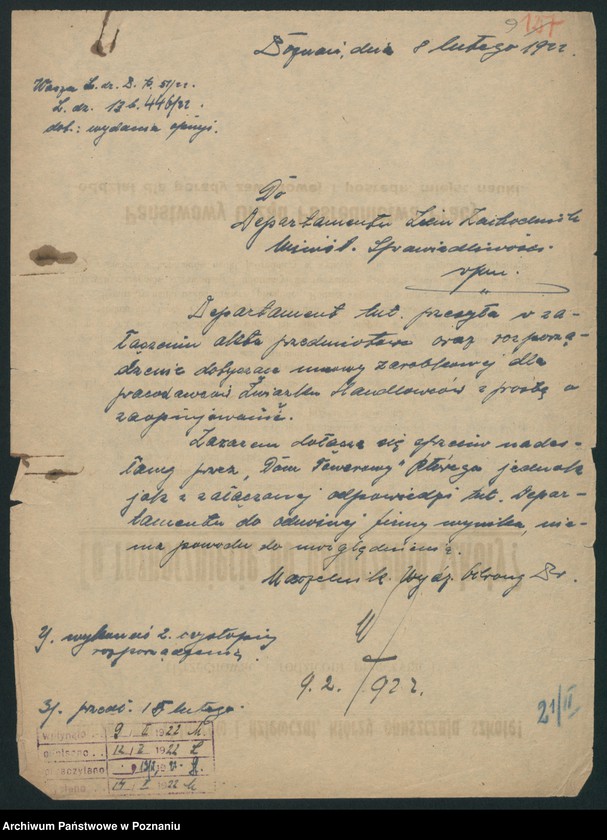 9 147
Poznań, dnia 8 lutego 1922.
Wasza L. dz. D. K. 51/22.
L. dz. 13 b. 446/22
dot.: wydania opinji.
Do
Departamentu Ziem Zachodnich
Minist. Sprawiedliwości
Departament tut. przesyła w za-
łączeniu akta przedmiotowe oraz rozporzą-
dzenie dotyczące umowy zarobkowej dla
pracodawców Związku Handlowców z prośbą o
zaopinjowanie.
Zarazem dołącza się sprzeciw nades-
łany przez "Dom Towarowy" którego jednak
jak z załączonej odpowiedzi tut. Depar-
tamentu do odnośnej firmy wynika, nie-
ma powodu do uwzględnienia.
Naczelnik Wydz. Ochrony
2/. wykonać 2. czystopisy
rozporządzenia.
9. 2. 1922 r.
3/. przedł. 15 lutego.
21/II
wpłynęło . . 9 II 1922
12 II 1922
192
1922
Archiwum Państwowe w Poznaniu